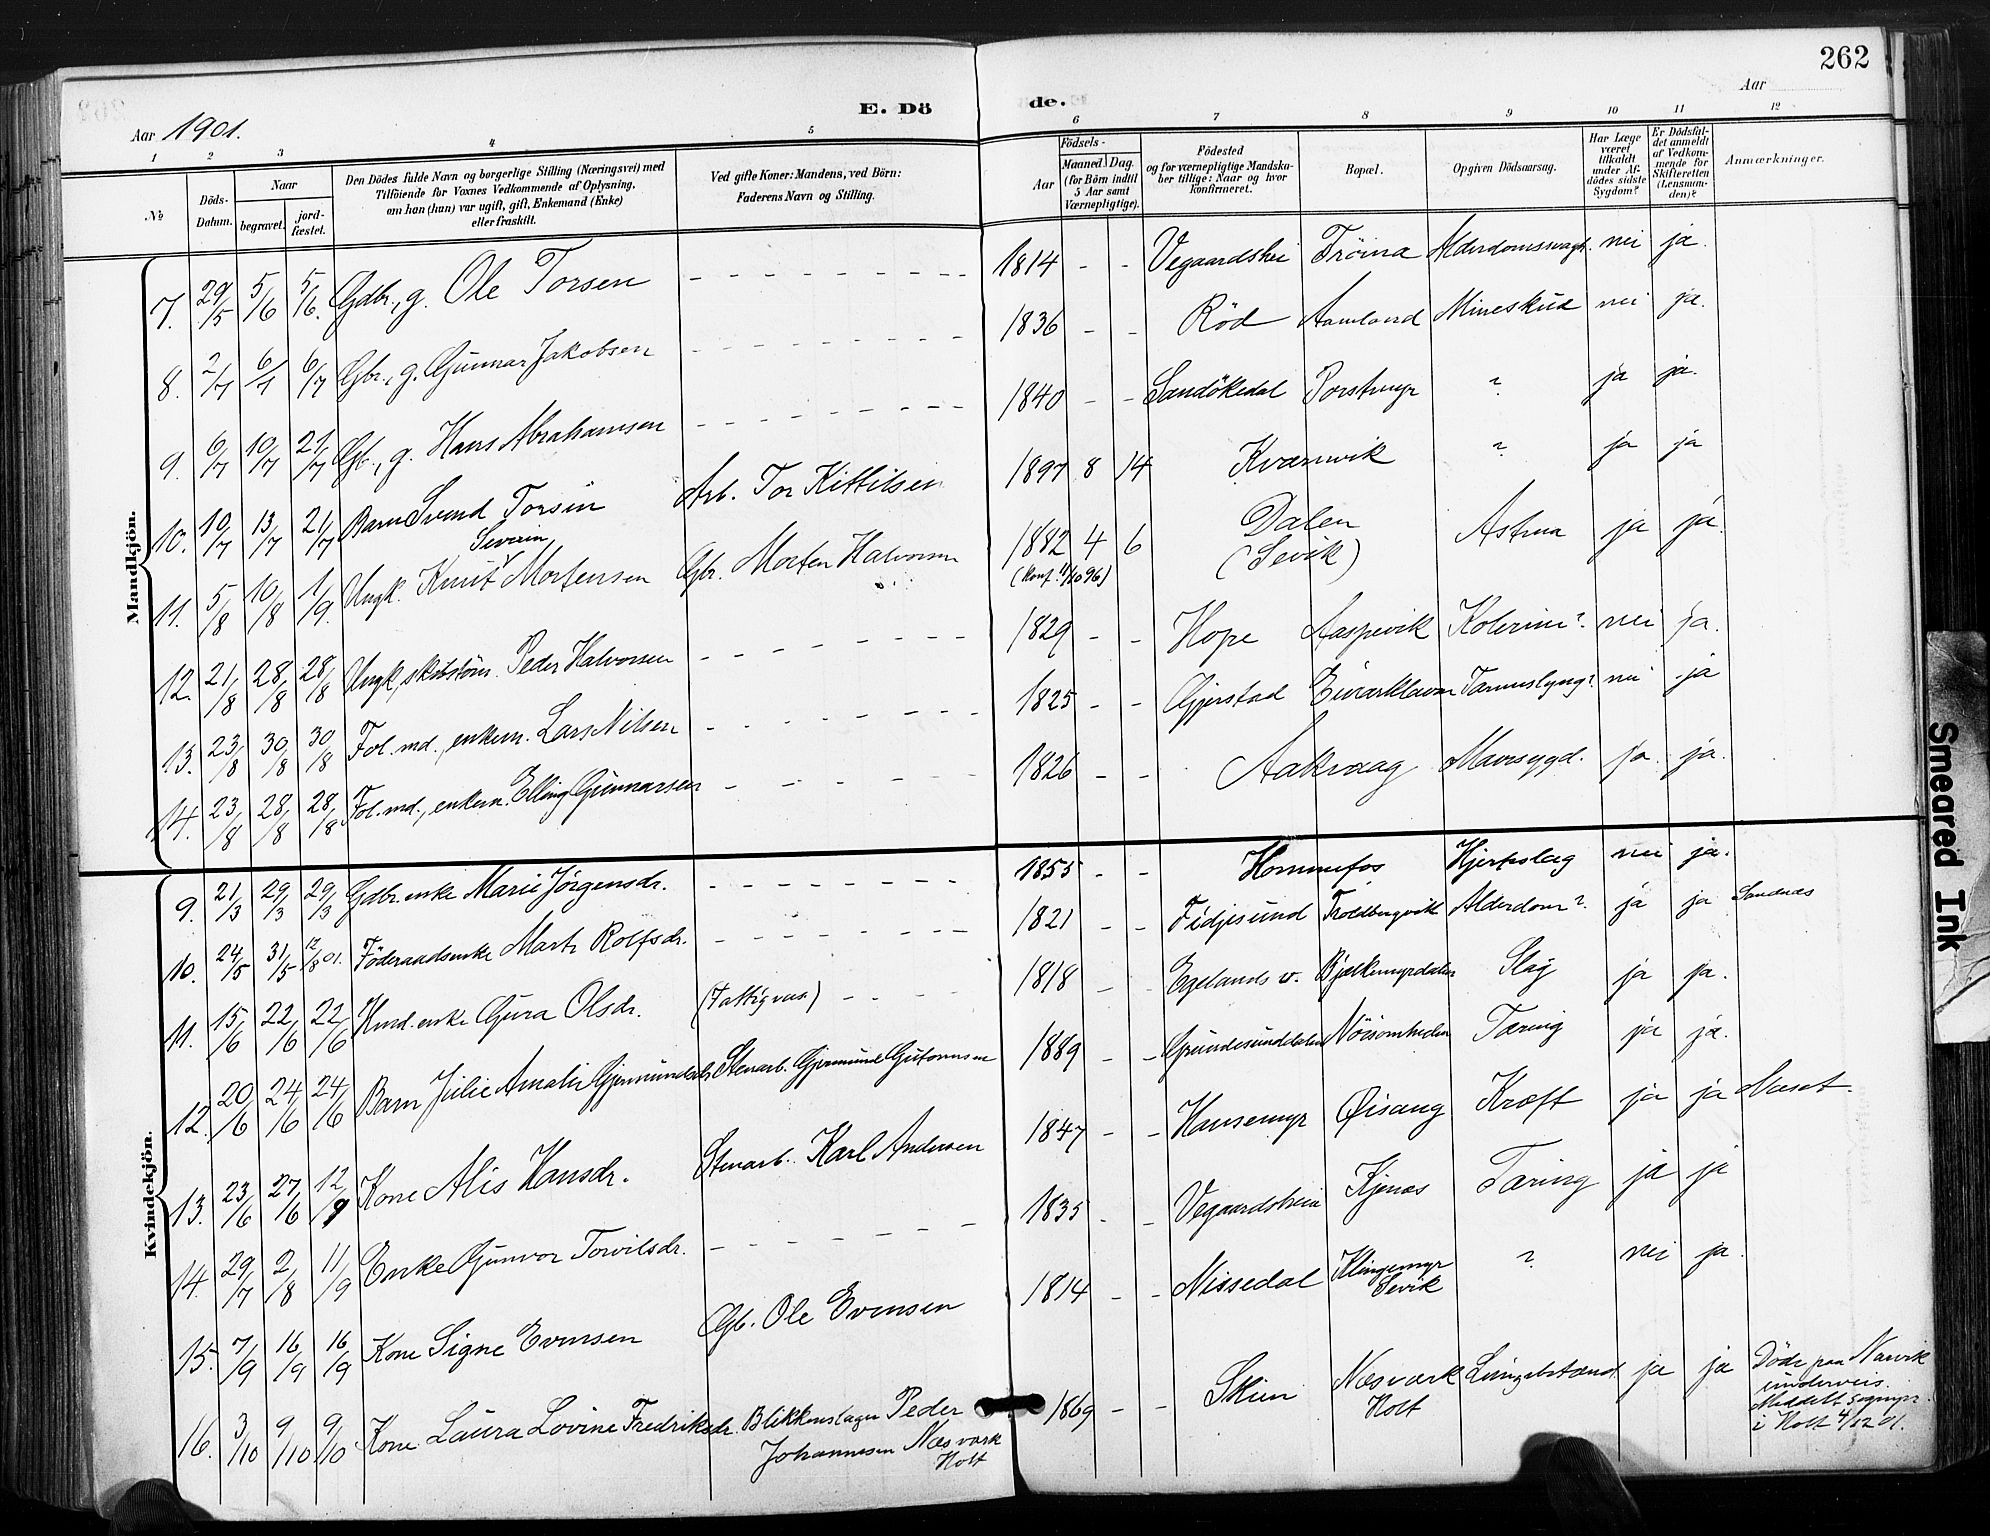 262
E. Dö de.
Aar 1901.
Aar
1 2 3 4 5 6 7 8 9 10 11 12
№
Döds-Datum.
Naar
begravet.
jord-fæstet.
Den Dödes fulde Navn og borgerlige Stilling (Næringsvei) med
Tilföiende for Voxnes Vedkommende af Oplysning,
om han (hun) var ugift, gift, Enkemand (Enke)
eller fraskilt.
Ved gifte Koner: Mandens, ved Börn:
Faderens Navn og Stilling.
Födsels-
Aar
Maaned Dag.
(for Börn indtil
5 Aar samt
Værnepligtige).
Födested
og for værnepligtige Mandska-
ber tillige: Naar og hvor
konfirmeret.
Bopæl.
Opgiven Dödsaarsag.
Har Læge
været
tilkaldt
under Af-
dödes sidste
Sygdom?
Er Dödsfal-
det anmeldt
af Vedkom-
mende for
Skifteretten
(Lensman-
den)?
Anmærkninger.
Mandkjön.
7. 29/5 5/6 5/6. Gdbr., g. Ole Torsen - - - 1814 - - Vegaardshei Fröina Alderdomssvagh. nei ja.
8. 2/7 6/7 6/7 Gbr., g. Gunnar Jakobsen - - - 1836 - - Röd Aamland Mineskud nei ja.
9. 6/7 10/7 21/7 Gb., g. Hans Abrahamsen - - - 1840 - - Sandökedal Porstmyr ? ja ja.
10. 10/7 13/7 21/7 Barn Svend Torsen Arb. Tor Kittilsen 1897 8 14 Kvænvik ? ja ja
Severin
11. 5/8 10/8 1/9. Ungk. Knut Mortensen Gbr. Morten Halvorsen 1882 4 6 Dalen Astma ja ja.
(Konf. 11/10 96) (Sevik)
12. 21/8 28/8 28/8 Ungk, skibstöm. Peder Halvorsen - - - 1829 - - Hope Aaspevik Kolerine? nei ja.
13. 23/8 30/8 30/8 Fol. md., enkem. Lars Nilsen - - - 1825 - - Gjerstad Eivarklaven Tarmslyng? nei ja
14. 23/8 28/8 28/8 Fol. md., enkem. Elling Gunnarsen - - - 1826 - - Aakvaag Mavesygd. ja. ja.
Kvindekjön.
9. 21/3 29/3 29/3 Gdbr. enke Marie Jörgensdr. - - - 1855 - - Hommefos Hjerteslag nei ja.
10. 24/5 31/5 12/8 01. Föderaadsenke Marte Rolfsdr. - - - 1821 - - Fidjesund Troldbergvik Alderdom? ja ja Sandnæs
11. 15/6 22/6 22/6 Hmd. enke Gura Olsdr. (Fattigvæs.) - - - 1818 - - Egelands v. Bjelkemyrdalen Slag ja ja.
12. 20/6 24/6 24/6 Barn Julie Amalie Gjermundsdr. Stenarb. Gjermund Guttormsen 1889 - - Grundesunddalen Nörsomheden Tæring ja ja.
13. 23/6 27/6 12/9 Kone Alis Hansdr. Stenarb. Karl Andersen 1847 - - Hansemyr Øisang Kræft ja ja Muset.
14. 29/7 2/8 11/9 Enke Gunvor Torvilsdr. - - - 1835 - - Vegaardsheia Kjenæs Tæring ja ja
15. 7/9 16/9 16/9 Kone Signe Evensen Gb. Ole Evensen 1814 - - Nissedal Klingemyr Sevik ? nei ja.
16. 3/10 9/10 9/10 Kone Laura Lovine Fredriksdr. Blikkenslager Peder Johannesen Næsværk Holt 1869 - - Skien Næsværk Holt Lungebetænd. ja ja Döde paa Narvik
underveis.
Meddelt sognepr.
i Holt 4/12 01.
Smeared Ink